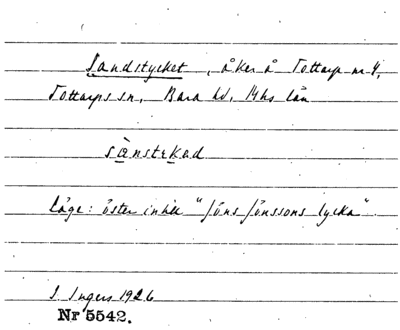 Sandstycket, åker å Tottarp nr 4,
Tottarps sn, Bara hd, Mhs län
sanstɛkad
Läge: öster intill "Jöns Jönssons lycka".
I. Ingers 1926
Nr 5542.